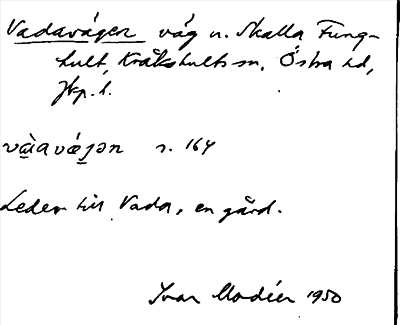 Vadavägen väg u. Skalla Fung-
hult, Kråkshults sn, Östra hd,
Jkp. l.
s. 164
Leder till Vada, en gård.
Ivar Modéer 1950